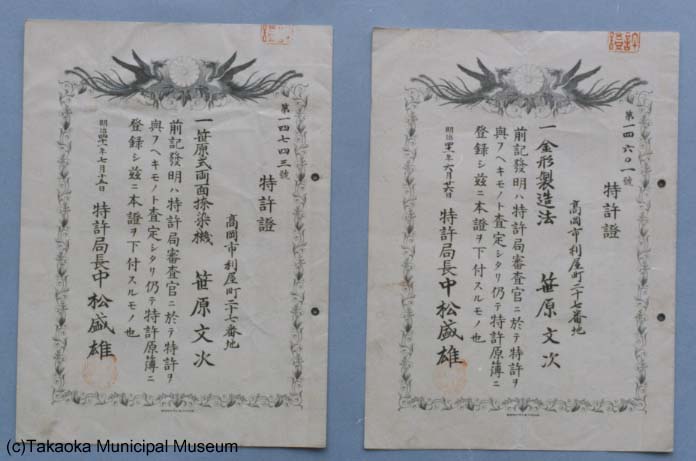 第一四六〇一號
特許證
高岡市利屋町二十七番地
一金形製造法 笹原文次
前記發明ハ特許局審査官ニ於テ特許ヲ
與フヘキモノト査定シタリ仍テ特許原簿ニ
登録シ玆ニ本證ヲ下付スルモノ也
明治四十一年六月廿六日 特許局長中松盛雄
第一四七四三號
特許證
高岡市利屋町二十七番地
一笹原式両面捺染機 笹原文次
前記發明ハ特許局審査官ニ於テ特許ヲ
與フヘキモノト査定シタリ仍テ特許原簿ニ
登録シ玆ニ本證ヲ下付スルモノ也
特許局長中松盛雄
(c)Takaoka Municipal Museum